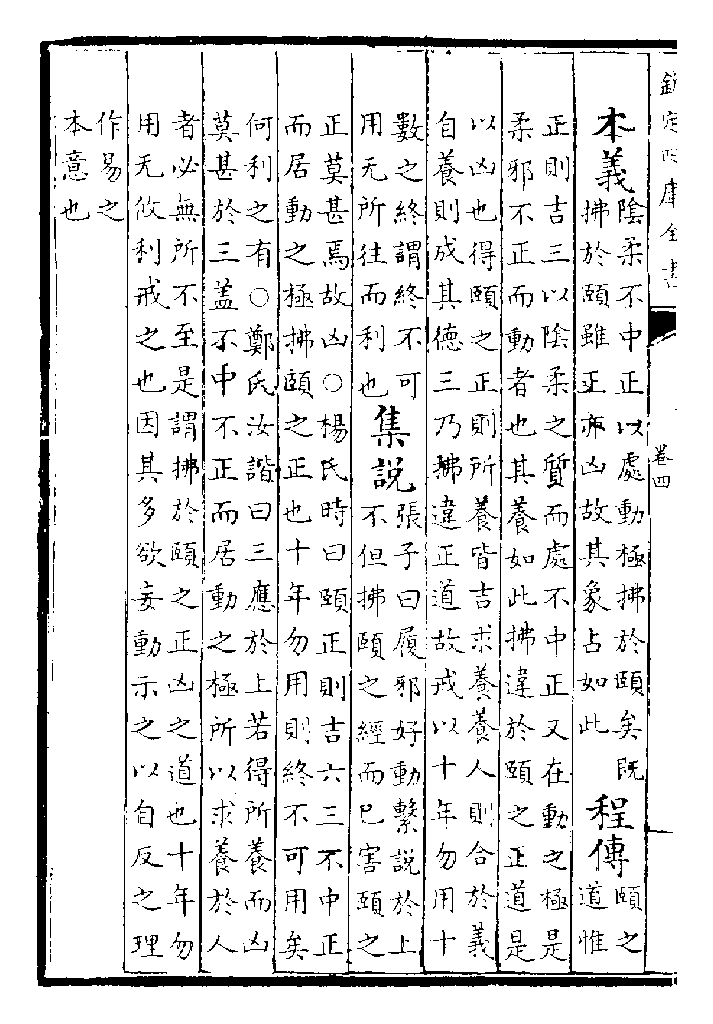 欽定四庫全書
卷四
本義
陰柔不中正以處動極拂於頤矣既
拂於頤雖正亦凶故其象占如此
程傳
頤之
道惟
正則吉三以陰柔之質而處不中正又在動之極是
柔邪不正而動者也其養如此拂違於頤之正道是
以凶也得頤之正則所養皆吉求養養人則合於義
自養則成其德三乃拂違正道故戒以十年勿用十
數之終謂終不可
用无所往而利也
集說
張子曰履邪好動繫說於上
不但拂頤之經而已害頤之
正莫甚焉故凶○楊氏時曰頤正則吉六三不中正
而居動之極拂頤之正也十年勿用則終不可用矣
何利之有○鄭氏汝諧曰三應於上若得所養而凶
莫甚於三蓋不中不正而居動之極所以求養於人
者必無所不至是謂拂於頤之正凶之道也十年勿
用无攸利戒之也因其多欲妄動示之以自反之理
作易之
本意也